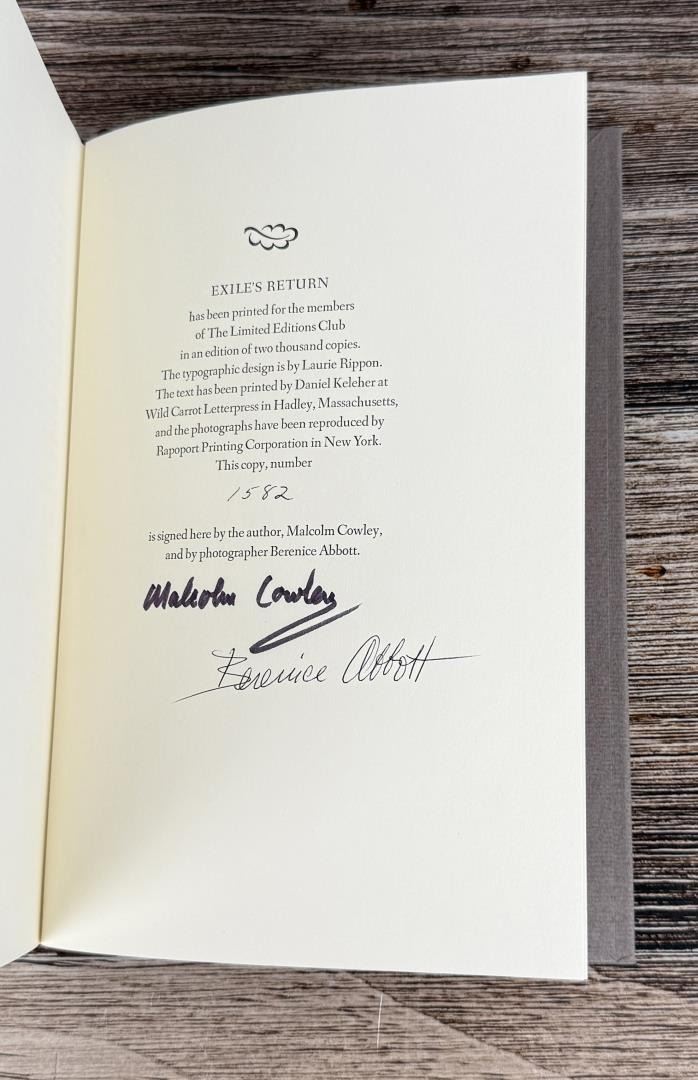 EXILE'S RETURN
has been printed for the members
of The Limited Editions Club
in an edition of two thousand copies.
The typographic design is by Laurie Rippon.
The text has been printed by Daniel Keleher at
Wild Carrot Letterpress in Hadley, Massachusetts,
and the photographs have been reproduced by
Rapoport Printing Corporation in New York.
This copy, number
1582
is signed here by the author, Malcolm Cowley,
and by photographer Berenice Abbott.
Malcolm Cowley
Berenice Abbott